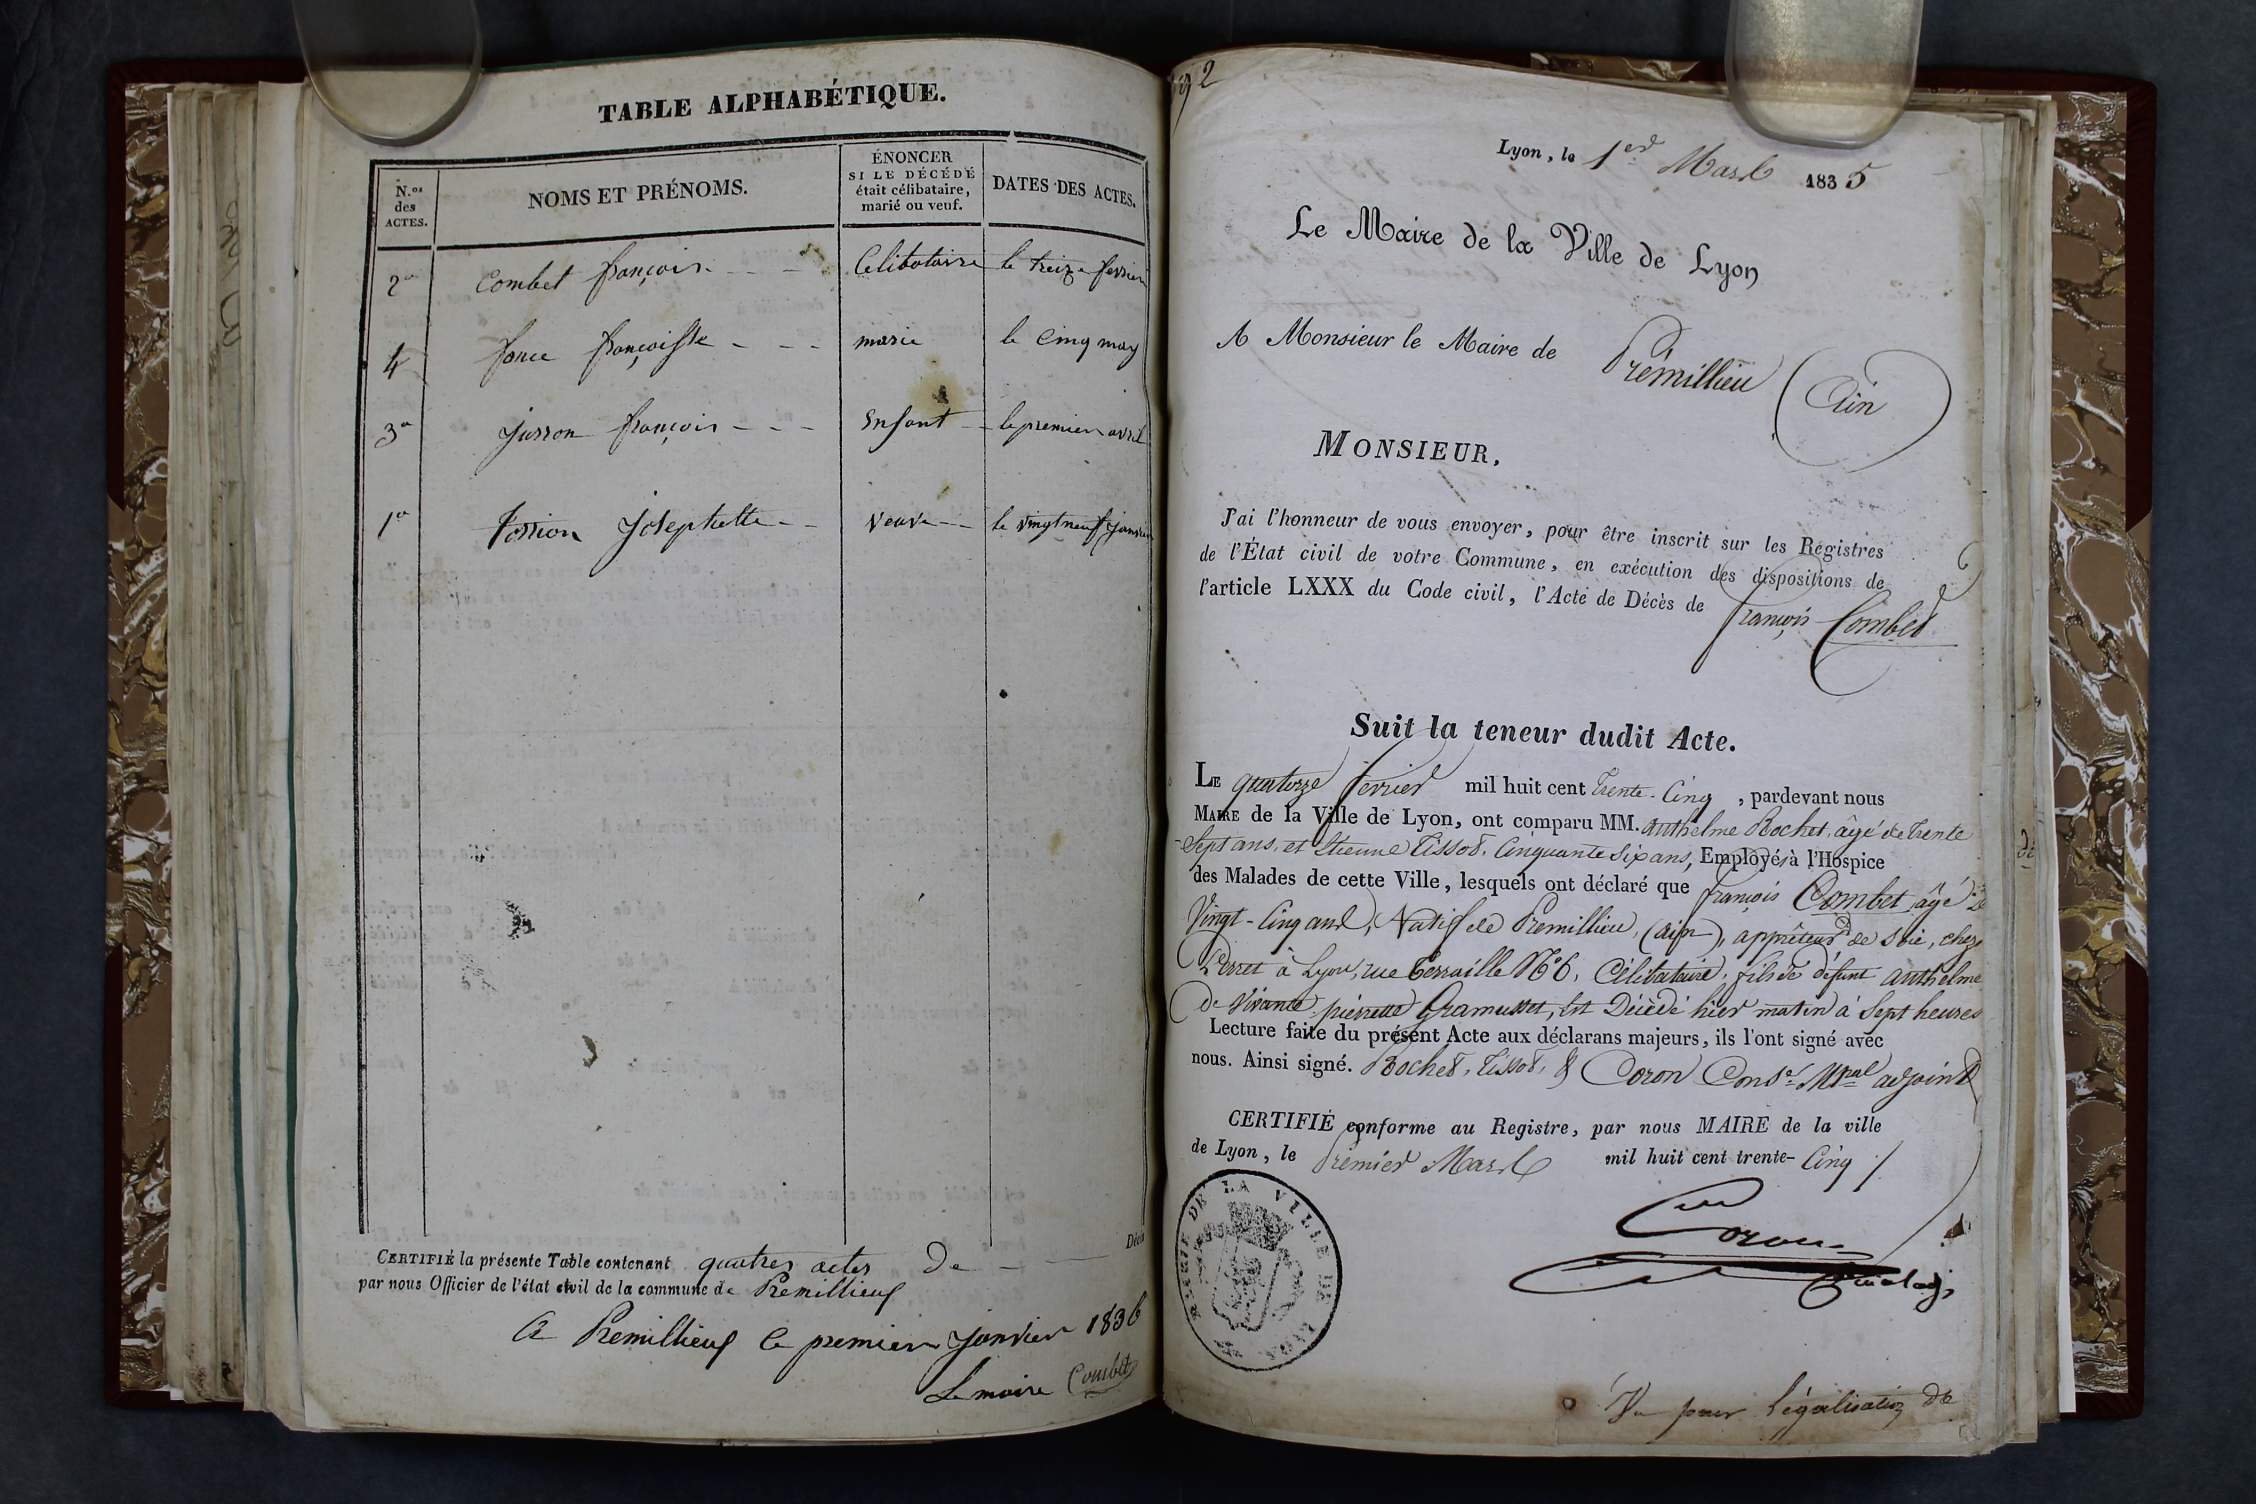 TABLE ALPHABÉTIQUE.
N.os des ACTES.
NOMS ET PRÉNOMS.
ÉNONCER SI LE DÉCÉDÉ était célibataire, marié ou veuf.
DATES DES ACTES.
2e Combet françois - - Celibataire le treize fevrier
4 fançoiste - - - marie le Cinq may
3e Jusson françois - - - Enfant - le premier avril
1er Josephette - - veuve - - le vingt neuf janvier
Décès
CERTIFIÉ la présente Table contenant quatres actes De - —
par nous Officier de l'état civil de la commune de Premillieuf
A Premillieuf le premier janvier 1836
Le maire Combet
2
Lyon, le 1er Mars 1835
Le Maire de la Ville de Lyon
A Monsieur le Maire de Prémillieu (Ain)
MONSIEUR,
J'ai l'honneur de vous envoyer, pour être inscrit sur les Registres
de l'État civil de votre Commune, en exécution des dispositions de
l'article LXXX du Code civil, l'Acte de Décès de françois Combet
Suit la teneur dudit Acte.
LE quatorze fevrier mil huit cent Trente-Cinq, pardevant nous
MAIRE de la Ville de Lyon, ont comparu MM. Anthelme Rochet, âgé de Trente
-Sept ans, et Etienne Tissot, Cinquante Six ans, Employés à l'Hospice
des Malades de cette Ville, lesquels ont déclaré que françois Combet âgé de
Vingt-Cinq ans, Natif de Premillieu, (ain), apprêteur de soie, chez
Perret à Lyon, rue Terraille No 6, Célibataire, fils de défunt Anthelme
& de vivante pierrette Gramusset, Est Décédé hier matin à Sept heures
Lecture faite du présent Acte aux déclarans majeurs, ils l'ont signé avec
nous. Ainsi signé. Rochet, Tissot, & Coron Conser Mpal adjoint
CERTIFIÉ conforme au Registre, par nous MAIRE de la ville
de Lyon, le Premier Mars mil huit cent trente-Cinq /
MAIRIE DE LA VILLE DE LYON
Coron
Vu pour légalisation de